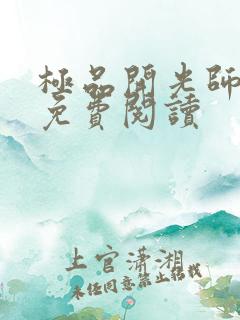 極品開光師
免費閱讀
上官瀟湘
未經同意禁止轉載